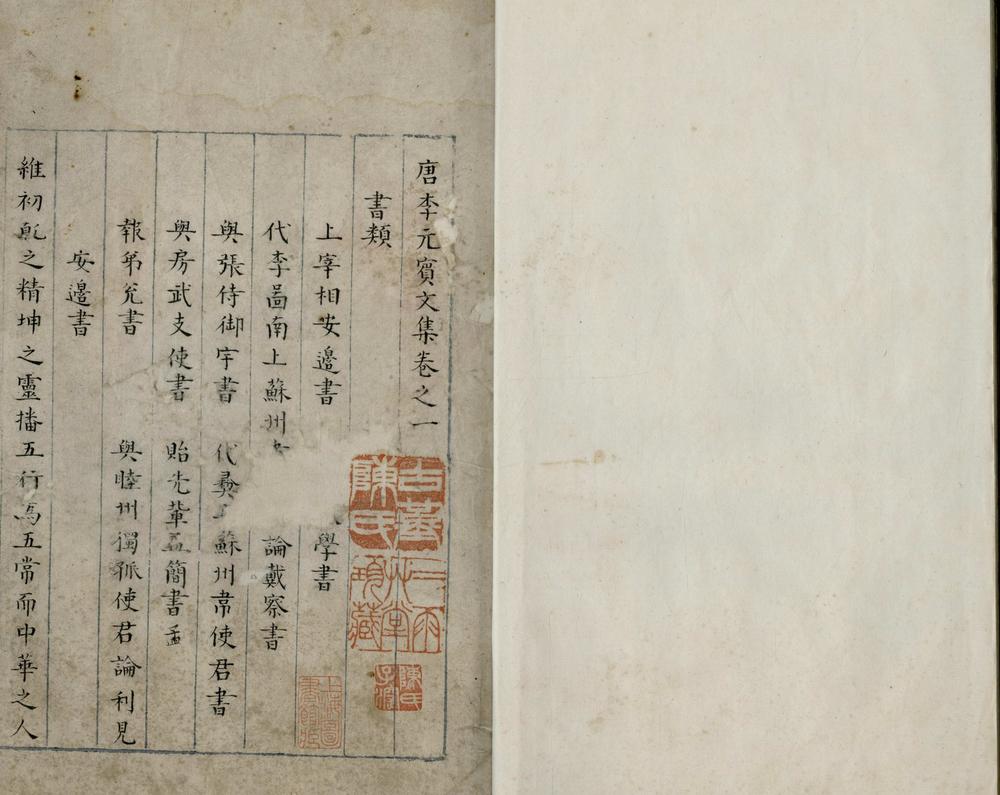 唐李元賓文集卷之一
書類
上宰相安邊書 學書
代李啚南上蘇州 論戴察書
與張侍御宇書 代彝 蘇州韋使君書
與房武支使書 貽先輩孟簡書
報弟兊書 與睦州獨孤使君論利見
安邊書
維初乹之精坤之靈播五行爲五常而中華之人
古菴
陳氏
陳氏
上海圖
書館藏